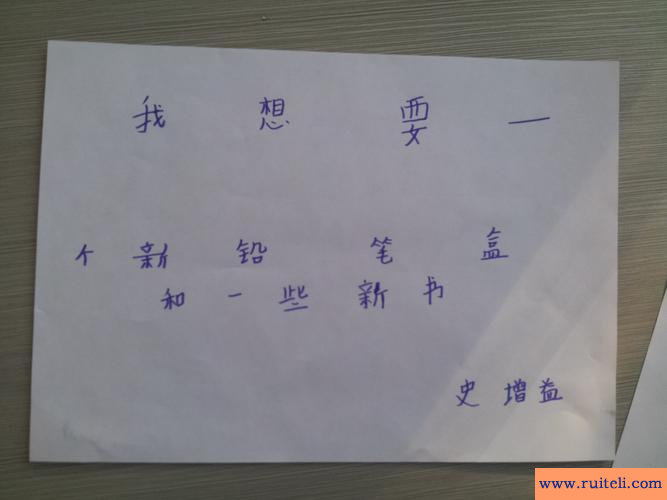 我想要一
个新铅笔盒
和一些新书
史增益
www.ruiteli.com